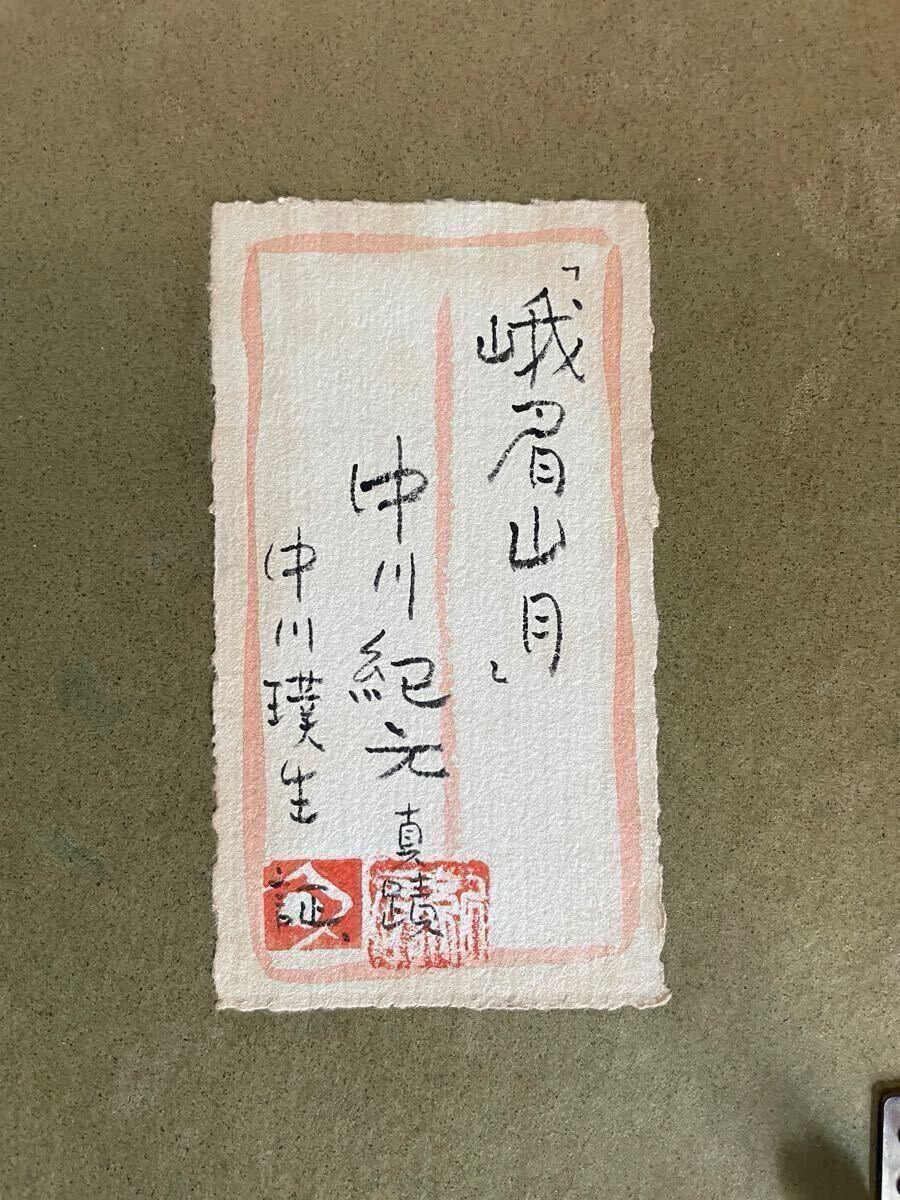 「峨眉山月」
中川紀元真蹟
中川璞生証